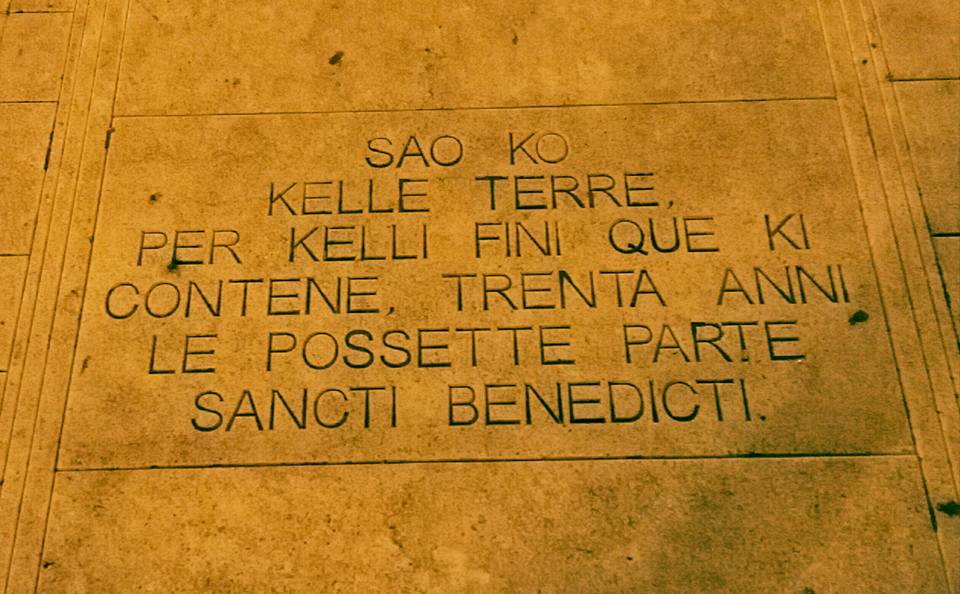 SAO KO
KELLE TERRE,
PER KELLI FINI QUE KI
CONTENE, TRENTA ANNI
LE POSSETTE PARTE
SANCTI BENEDICTI.